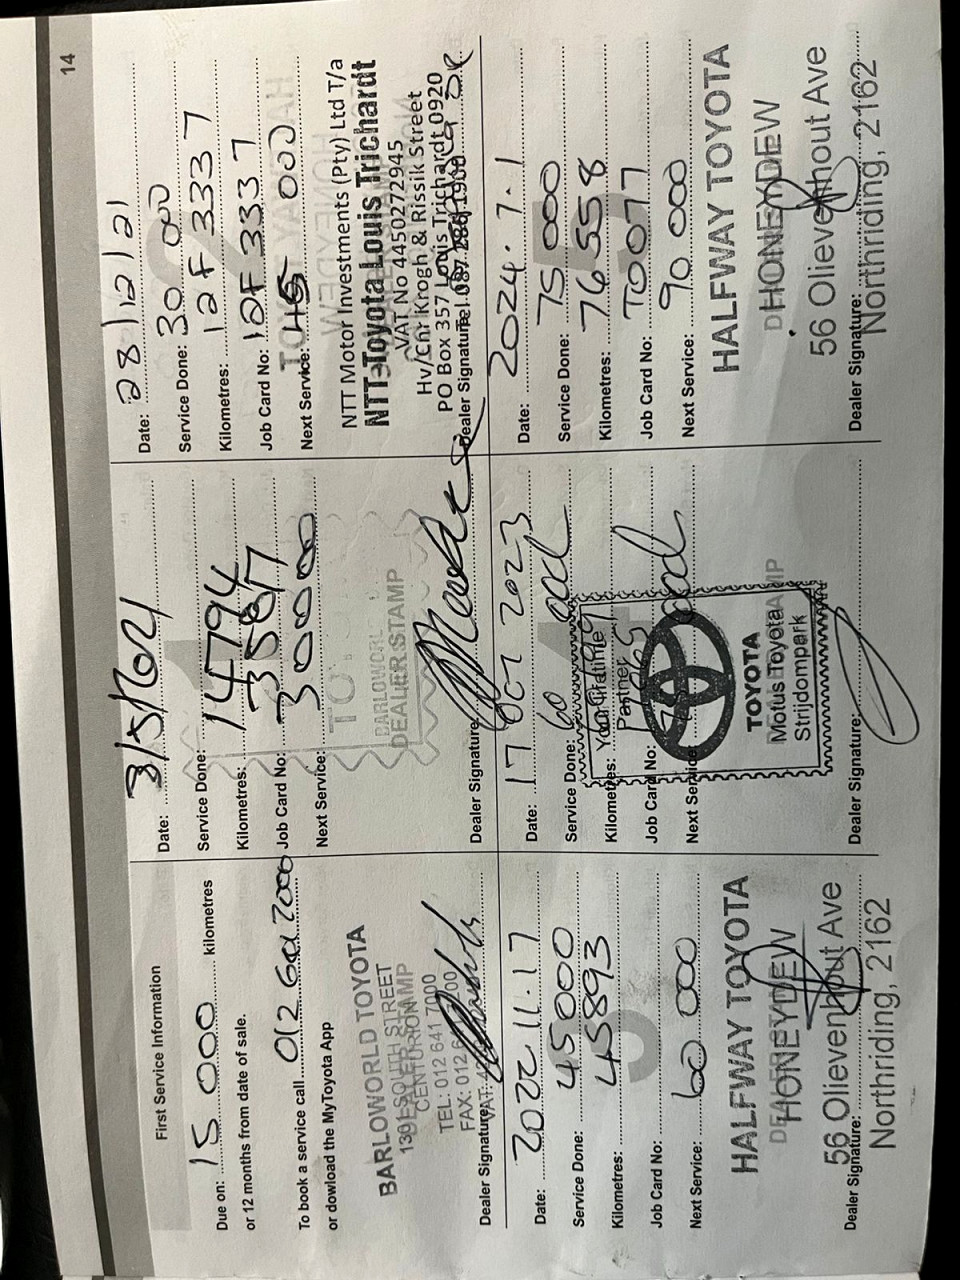 14
First Service Information
Due on: 15 000 kilometres
or 12 months from date of sale.
To book a service call 012 641 7000
or dowload the MyToyota App
BARLOWORLD TOYOTA
SOUTH STREET
CENTURION
TEL: 012 641 7000
FAX: 012
Dealer Signature:
Date: 3/5/2021
Service Done:
Kilometres: 14794
Job Card No: 73587
Next Service: 30000
BARLOWORL
DEALER STAMP
Dealer Signature
Date: 28/12/21
Service Done: 30 000
Kilometres: 12F3337
Job Card No: 12F3337
Next Service: 45 000
NTT Motor Investments (Pty) Ltd T/a
NTT Toyota Louis Trichardt
VAT No 4450272945
Hv/Cnr Krogh & Rissik Street
PO Box 357 Louis Trichardt 0920
Dealer Signature
Date: 2022.11.17
Service Done: 45000
Kilometres: 45893
Job Card No:
Next Service: 60 000
HALFWAY TOYOTA
HONEYDEW
56 Olievenhout Ave
Northriding, 2162
Dealer Signature:
Date: 17 OCT 2023
Service Done: 60 000
Kilometres:
Job Card No:
Next Service
Partner
TOYOTA
Motus Toyota
Strijdompark
Dealer Signature:
Date: 2024.7.1
Service Done: 75 000
Kilometres: 76558
Job Card No: T0077
Next Service: 90 000
HALFWAY TOYOTA
HONEYDEW
56 Olievenhout Ave
Northriding, 2162
Dealer Signature: